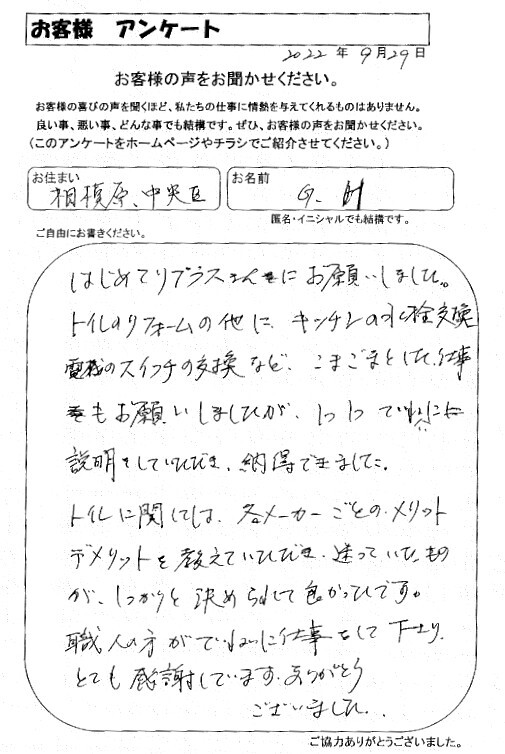 お客様 アンケート
2022 年 9月29日
お客様の声をお聞かせください。
お客様の喜びの声を聞くほど、私たちの仕事に情熱を与えてくれるものはありません。
良い事、悪い事、どんな事でも結構です。ぜひ、お客様の声をお聞かせください。
(このアンケートをホームページやチラシでご紹介させてください。)
お住まい
相模原、中央区
お名前
匿名・イニシャルでも結構です。
ご自由にお書きください。
はじめてリプラスさんにお願いしました。
トイレのリフォームの他に、キッチンの水栓交換
電機のスイッチの交換など、こまごまとした仕事
もお願いしましたが、1つ1つていねいに
説明をしていただき、納得できました。
トイレに関しては、各メーカーごとのメリット
デメリットを教えていただき、迷っていたもの
が、しっかりと決められて良かったです。
職人の方がていねいに仕事をして下さり、
とても感謝しています。ありがとう
ございました。
ご協力ありがとうございました。